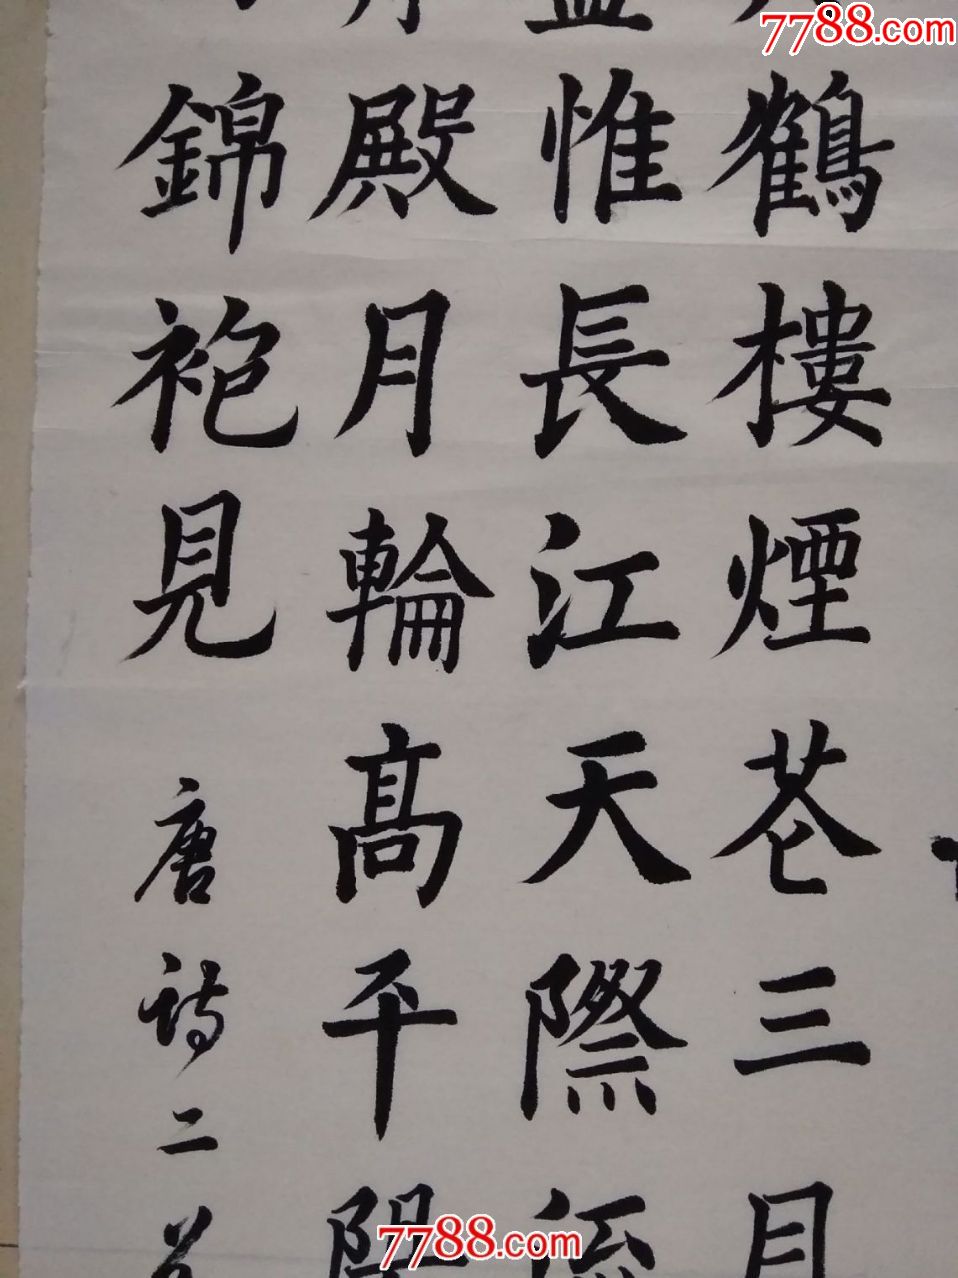 7788.com
鶴樓煙苍三月
惟長江天際流
殿月輪高平陽
錦袍見
唐詩二首
7788.com